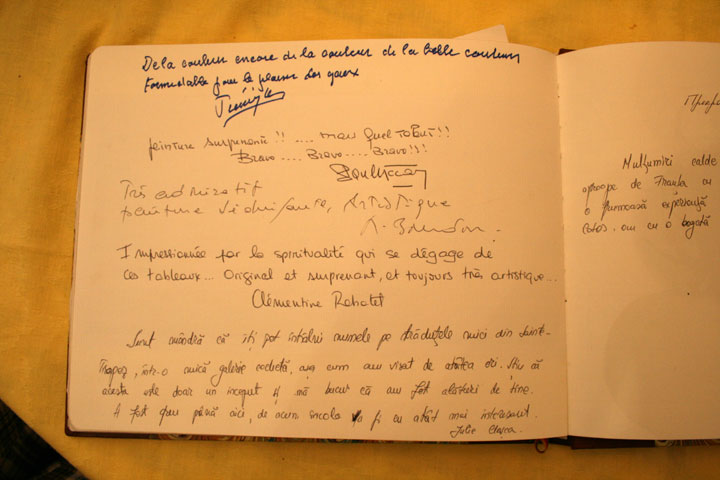 De la couleur encore de la couleur de la belle couleur
Formidable pour le plaisir des yeux
peinture surprenante !! .... mais Quel TALENT!!
Bravo .... Bravo .... Bravo !!!
Très admiratif
peinture séduisante, Artistique
Impressionnée par la spiritualité qui se dégage de
ces tableaux... Original et surprenant, et toujours très artistique...
Clémentine Rebotet
Sunt mândră că îți pot întâlni numele pe străduțele mici din Sainte-
Tropez, într-o mică galerie cochetă, așa cum am visat de atâtea ori. Știu că
acesta este doar un început și mă bucur că am fost alături de tine.
A fost greu până aici, de acum încolo va fi cu atât mai interesant.
Julie
Mulțumiri calde
aproape de Franța cu
o frumoasă experiență
am cu o bogată